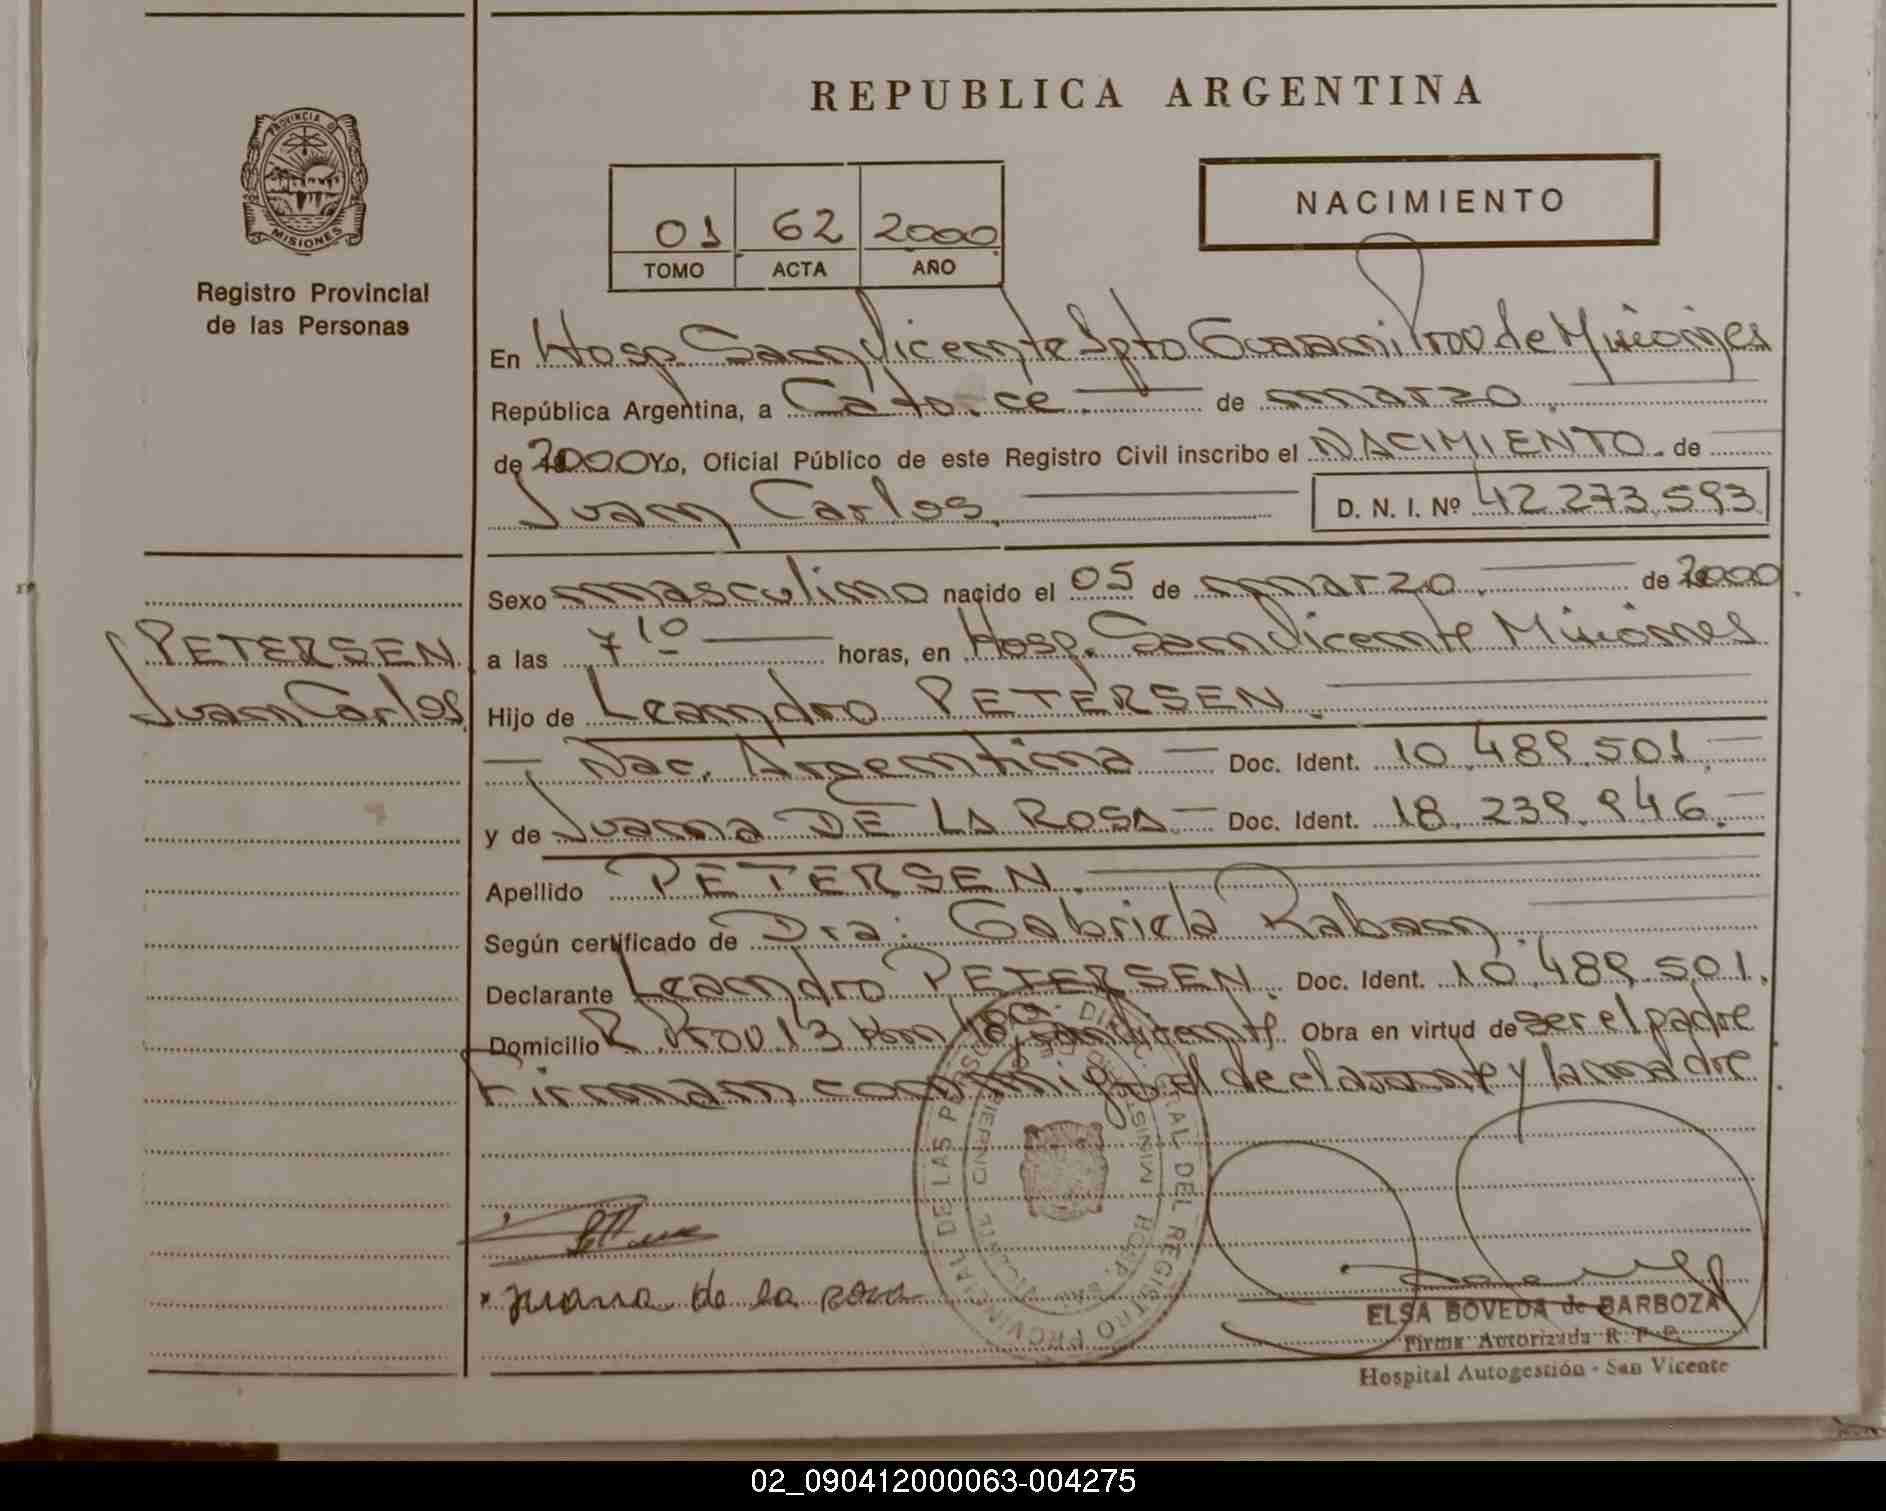 REPUBLICA ARGENTINA
PROVINCIA D
MISIONES
Registro Provincial
de las Personas
01 62 2000
TOMO ACTA AÑO
NACIMIENTO
En Hosp. San Vicente Dpto Guaraní Prov de Misiones
República Argentina, a Catorce de marzo
de 2000 Yo, Oficial Público de este Registro Civil inscribo el NACIMIENTO. de
Juan Carlos. D. N. I. Nº 42.273.593
Sexo masculino nacido el 05 de marzo de 2000
PETERSEN
Juan Carlos
a las 7 10 horas, en Hosp. San Vicente Misiones
Hijo de Leandro PETERSEN.
Nac. Argentina Doc. Ident. 10.489.501
y de Juana DE LA ROSA Doc. Ident. 18.239.946.
Apellido PETERSEN.
Según certificado de Dra: Gabriela Raban
Declarante Leandro PETERSEN. Doc. Ident. 10.489.501.
Domicilio R. Prov 13 Km San Vicente. Obra en virtud de ser el padre
Firman conmigo el declarante y la madre
juana de la rosa
ELSA BOVEDA de BARBOZA
Firma Autorizada R. P. P.
Hospital Autogestión - San Vicente
02_090412000063-004275